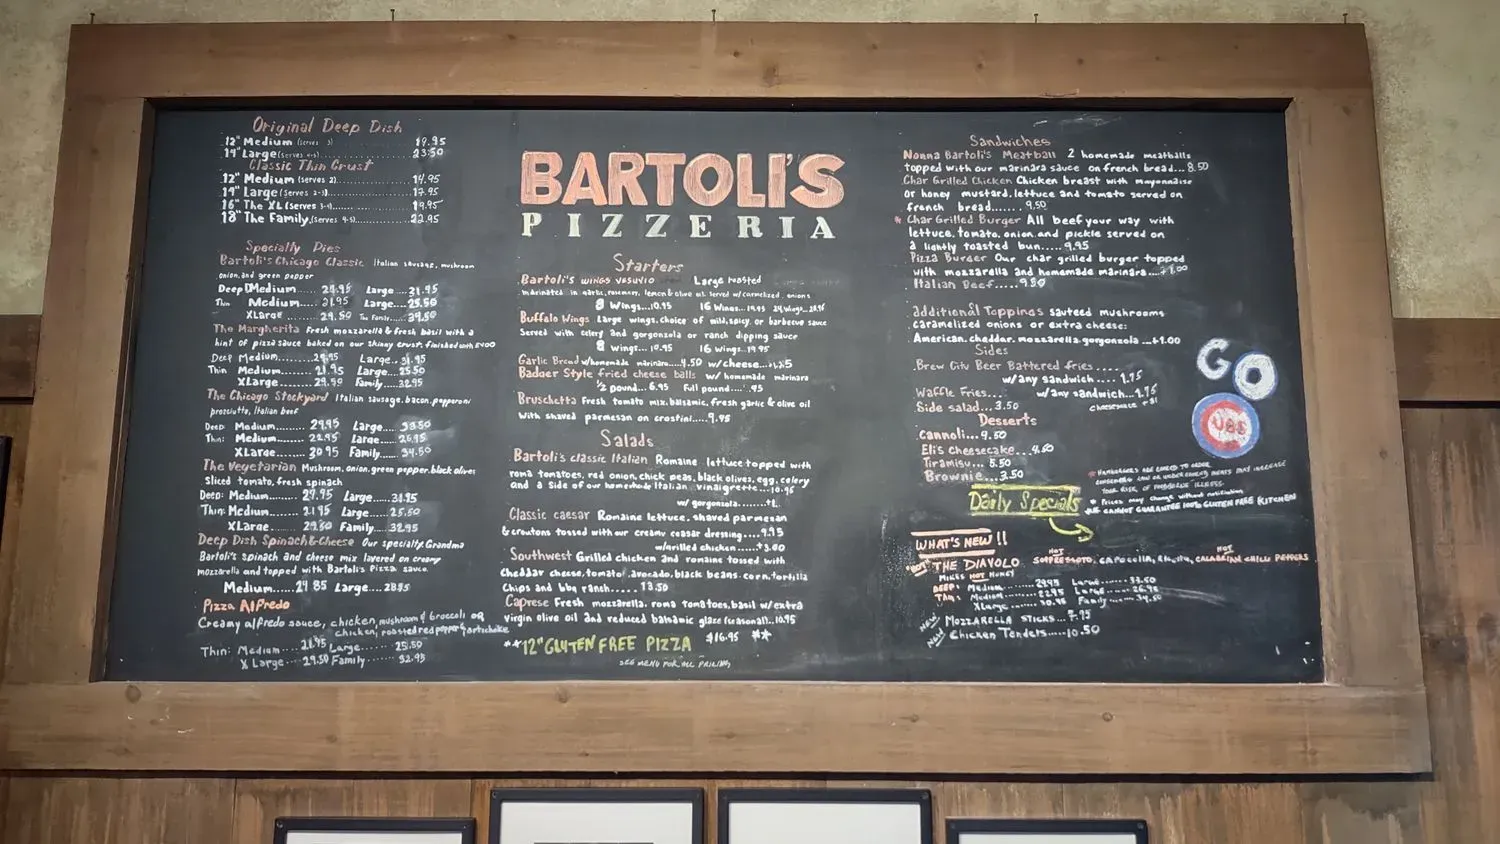 Original Deep Dish
12" Medium (serves 3) 19.95
14" Large (serves 4-5) 23.50
Classic Thin Crust
12" Medium (serves 2) 14.95
14" Large (serves 2-3) 17.95
16" The XL (serves 3-4) 19.95
18" The Family (serves 4-5) 22.95
Specialty Pies
Bartoli's Chicago Classic Italian sausage, mushroom
onion, and green pepper
Deep Medium 24.95 Large 31.95
Thin Medium 21.95 Large 25.50
XLarge 29.50 The Family 34.50
The Margherita Fresh mozzarella & fresh basil with a
hint of pizza sauce baked on our skinny crust, finished with EVOO
Deep Medium 29.95 Large 31.95
Thin Medium 21.95 Large 25.50
XLarge Family 32.95
The Chicago Stockyard Italian sausage, bacon, pepperoni
prosciutto, Italian beef
Deep: Medium 29.95 Large 33.50
Thin: Medium 22.95 Large 26.95
XLarge 30.95 Family 34.50
The Vegetarian Mushroom, onion, green pepper, black olives
Sliced tomato, fresh spinach
Deep: Medium 29.95 Large 31.95
Thin: Medium 21.95 Large 25.50
XLarge 29.50 Family 32.95
Deep Dish Spinach & Cheese Our specialty. Grandma
Bartoli's spinach and cheese mix layered on creamy
mozzarella and topped with Bartoli's Pizza sauce.
Medium Large
Pizza Alfredo
Creamy alfredo sauce, chicken, mushroom & broccoli OR
chicken, roasted red pepper & artichoke
Thin: Medium 21.95 Large 25.50
X Large 29.50 Family 32.95
BARTOLI'S
PIZZERIA
Starters
Bartoli's WINGS VESUVIO Large roasted
marinated in garlic, rosemary, lemon & olive oil. Served w/ carmelized onions
8 Wings...10.95 16 Wings...19.95 24 Wings...28.95
Buffalo Wings Large wings, choice of mild, spicy, or barbecue sauce
Served with celery and gorgonzola or ranch dipping sauce
8 Wings...10.95 16 Wings...19.95
Garlic Bread w/homemade marinara...4.50 w/cheese
Badger Style fried cheese balls w/ homemade marinara
1/2 pound...6.95 Full pound
Bruschetta Fresh tomato mix, balsamic, fresh garlic & olive oil
with shaved parmesan on crostini...9.95
Salads
Bartoli's classic Italian Romaine lettuce topped with
roma tomatoes, red onion, chick peas, black olives, egg, celery
and a side of our homemade Italian vinaigrette...10.95
w/ gorgonzola
Classic caesar Romaine lettuce, shaved parmesan
& croutons tossed with our creamy ceasar dressing....9.95
w/grilled chicken....+3.00
Southwest Grilled chicken and romaine tossed with
Cheddar cheese, tomato, avocado, black beans, corn, tortilla
Chips and bbq ranch..... 13.50
Caprese Fresh mozzarella, roma tomatoes, basil w/extra
virgin olive oil and reduced balsamic glaze (seasonal)..10.95
** 12" GLUTEN FREE PIZZA $16.95 **
SEE MENU FOR ALL PRICING
Sandwiches
Nonna Bartoli's Meatball 2 homemade meatballs
topped with our marinara sauce on french bread...8.50
Char Grilled Chicken Chicken breast with mayonnaise
or honey mustard, lettuce and tomato served on
french bread......9.50
* Char Grilled Burger All beef your way with
lettuce, tomato, onion, and pickle served on
a lightly toasted bun.....9.95
Pizza Burger Our char grilled burger topped
with mozzarella and homemade marinara...+1.00
Italian Beef.....9.50
additional Toppings sauteed mushrooms
caramelized onions or extra cheese:
American, cheddar, mozzarella, gorgonzola ...+1.00
Sides
Brew City Beer Battered fries
w/any sandwich .... 1.75
Waffle Fries... w/any sandwich...1.75
Side salad...3.50 cheesesauce + $1
Desserts
Cannoli...4.50
Eli's cheesecake...4.50
Tiramisu...5.50
Brownie...3.50
GO
CUBS
* HAMBURGERS ARE COOKED TO ORDER
CONSUMING RAW OR UNDERCOOKED MEATS MAY INCREASE
YOUR RISK OF FOODBORNE ILLNESS.
* Prices may change without notification
** CANNOT GUARANTEE 100% GLUTEN FREE KITCHEN
Daily Specials
WHAT'S NEW!!
"HOT" THE DIAVOLO HOT SOPPRESSATO, CAPOCOLLA, HOT CALABRIAN CHILI PEPPERS
MIKES HOT HONEY
DEEP: Medium 29.95 Large 33.50
Thin: Medium 22.95 Large 26.95
XLarge 30.95 Family 34.50
NEW MOZZARELLA STICKS...7.95
NEW Chicken Tenders....10.50